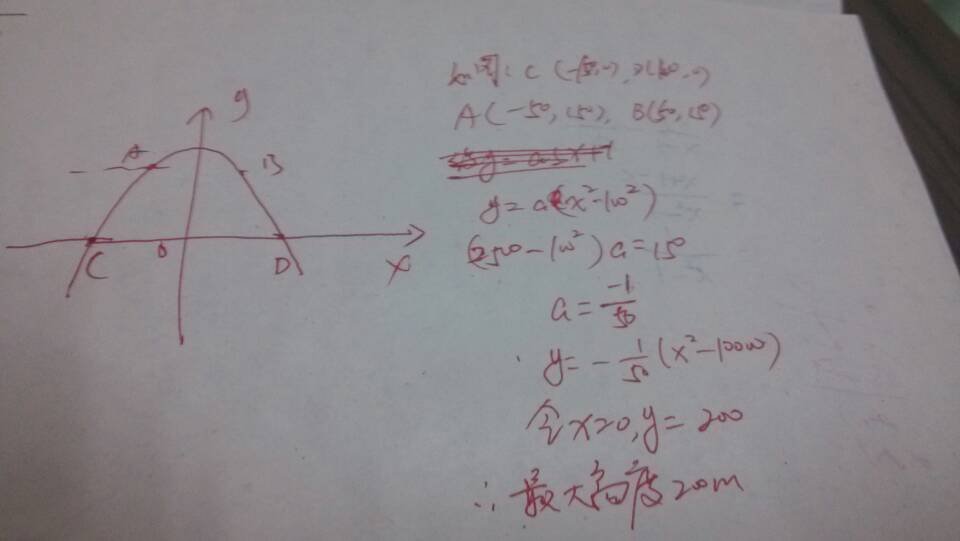 y
A
B
C
O
D
x
如图: C
A(-50, 150), B(50, 150)
y=a(x²-100²)
(2500-100²)a=150
a=-1/50
y=-1/50(x²-10000)
令x=0,y=200
∴最大高度200m